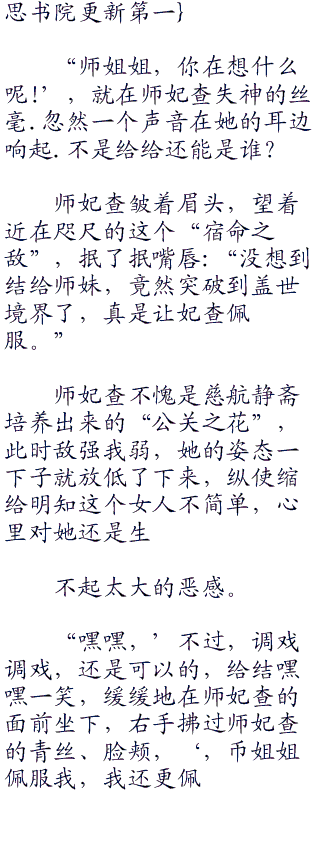 思书院更新第一}
“师姐姐，你在想什么
呢!’，就在师妃查失神的丝
毫.忽然一个声音在她的耳边
响起.不是给给还能是谁？
师妃查皱着眉头，望着
近在咫尺的这个“宿命之
敌”，抿了抿嘴唇:“没想到
结给师妹，竟然突破到盖世
境界了，真是让妃查佩
服。”
师妃查不愧是慈航静斋
培养出来的“公关之花”，
此时敌强我弱，她的姿态一
下子就放低了下来，纵使缩
给明知这个女人不简单，心
里对她还是生
不起太大的恶感。
“嘿嘿，’不过，调戏
调戏，还是可以的，给结嘿
嘿一笑，缓缓地在师妃查的
面前坐下，右手拂过师妃查
的青丝、脸颊，‘，币姐姐
佩服我，我还更佩